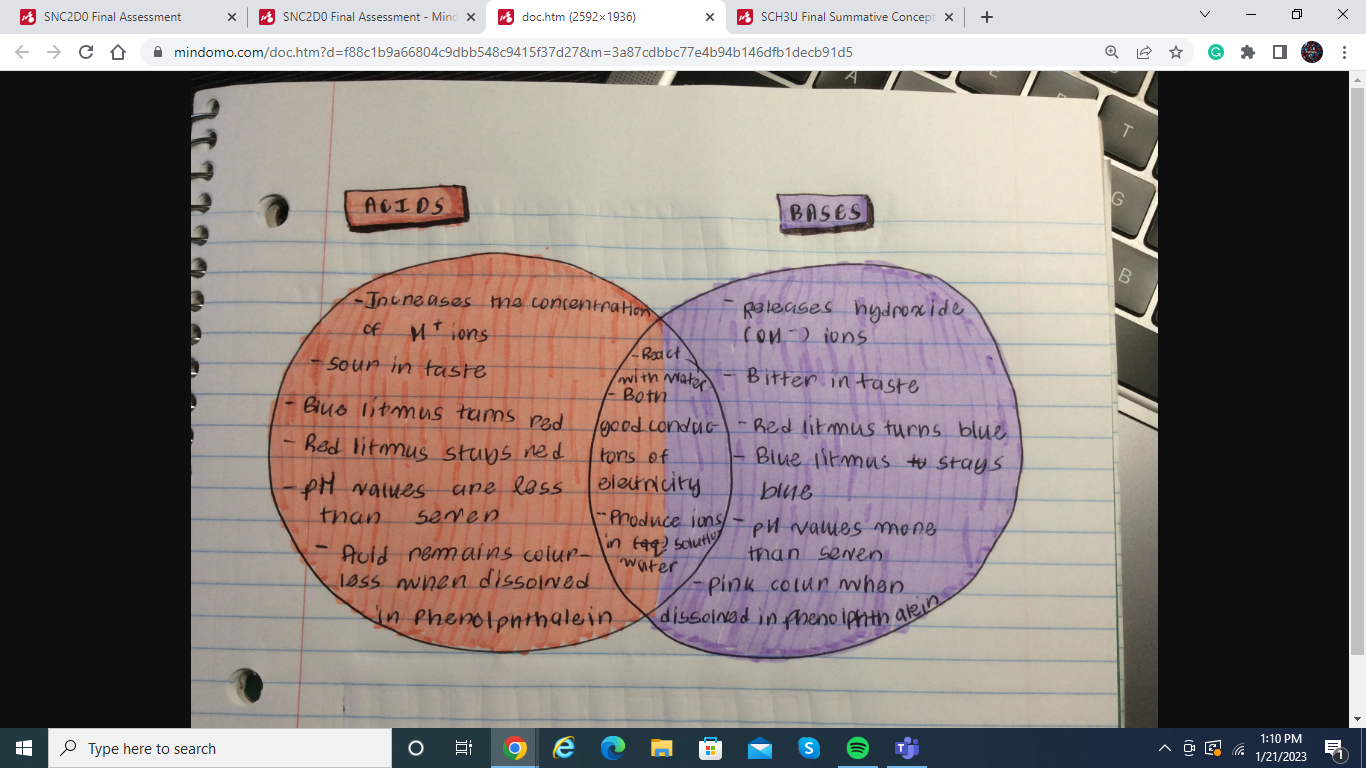 SNC2D0 Final Assessment
SNC2D0 Final Assessment - Mind
doc.htm (2592×1936)
SCH3U Final Summative Concept
mindomo.com/doc.htm?d=f88c1b9a66804c9dbb548c9415f37d27&m=3a87cdbbc77e4b94b146dfb1decb91d5
A
E
T
G
B
ACIDS
- Increases the concentration
of H+ ions
- sour in taste
- Blue litmus turns red
- Red litmus stays red
- pH values are less
than seven
- Acid remains colur-
less when dissolved
in Phenolphthalein
- React
with water
- Both
good conduc-
tors of
electricity
- Produce ions
in (aq) solution
water
BASES
- Releases hydroxide
(OH-) ions
- Bitter in taste
- Red litmus turns blue
- Blue litmus tu stays
blue
- pH values more
than seven
- pink colur when
dissolved in phenolphthalein
Type here to search
1:10 PM
1/21/2023
1